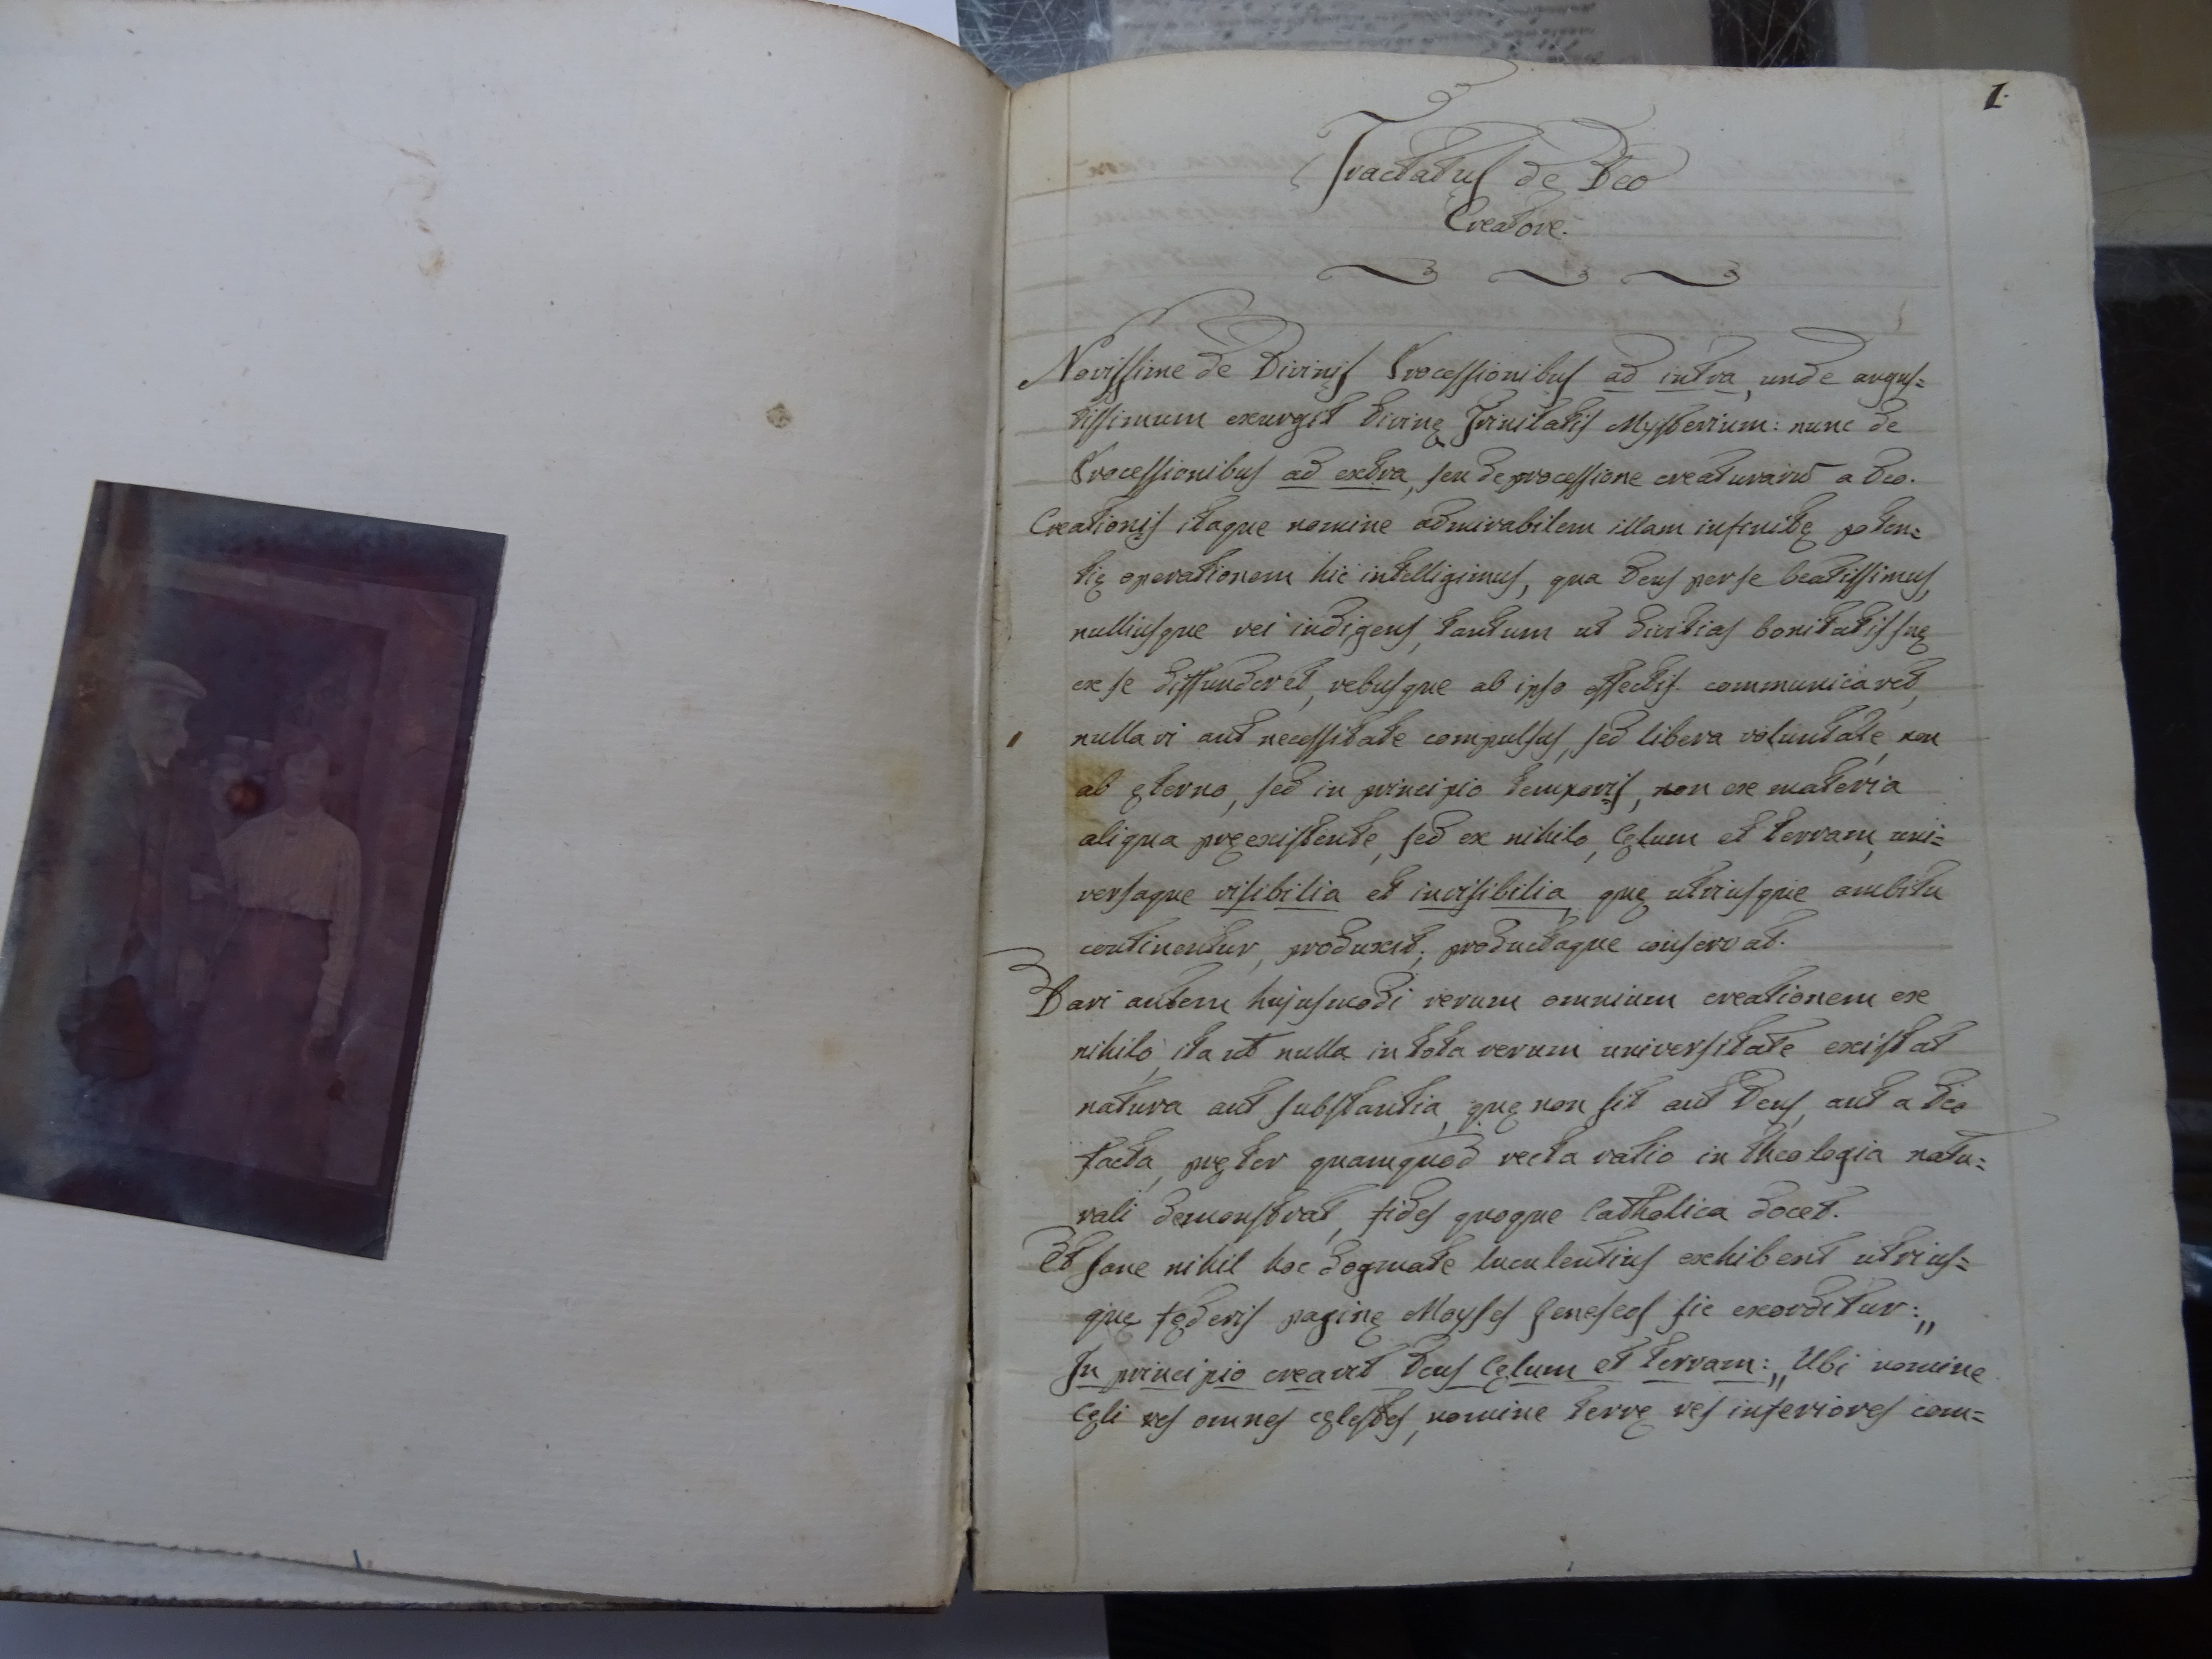 1.
Tractatus de Deo
Creatore.
Novissime de Divinis Processionibus ad intra, unde augus=
tissimum exurgit divinę Trinitatis Mysterium: nunc de
Processionibus ad extra, seu de processione creaturarū a Deo.
Creationis itaque nomine admirabilem illam infinitę poten=
tię operationem hic intelligimus, qua Deus per se beatissimus,
nulliusque rei indigens, tantum ut divitias bonitatis suę
ex se diffunderet, rebusque ab ipso effectis communicaret,
nulla vi aut necessitate compulsus, sed libera voluntate, non
ab ęterno, sed in principio temporis, non ex materia
aliqua pręexistente, sed ex nihilo, Cęlum et terram, uni=
versaque visibilia et invisibilia, quę utriusque ambitu
continentur, produxit; productaque conservat.
Dari autem hujusmodi rerum omnium creationem ex
nihilo, ita ut nulla in tota rerum universitate existat
natura aut substantia, quę non sit aut Deus, aut a Deo
facta, pręter quamquod recta ratio in theologia natu=
rali demonstrat, fides quoque Catholica docet.
Et sane nihil hoc dogmate luculentius exhibent utrius=
que fęderis paginę Moyses Geneseos sic exorditur: „
In principio creavit Deus Cęlum et terram: „ Ubi nomine
Cęli res omnes cęlestes, nomine terrę res inferiores com=